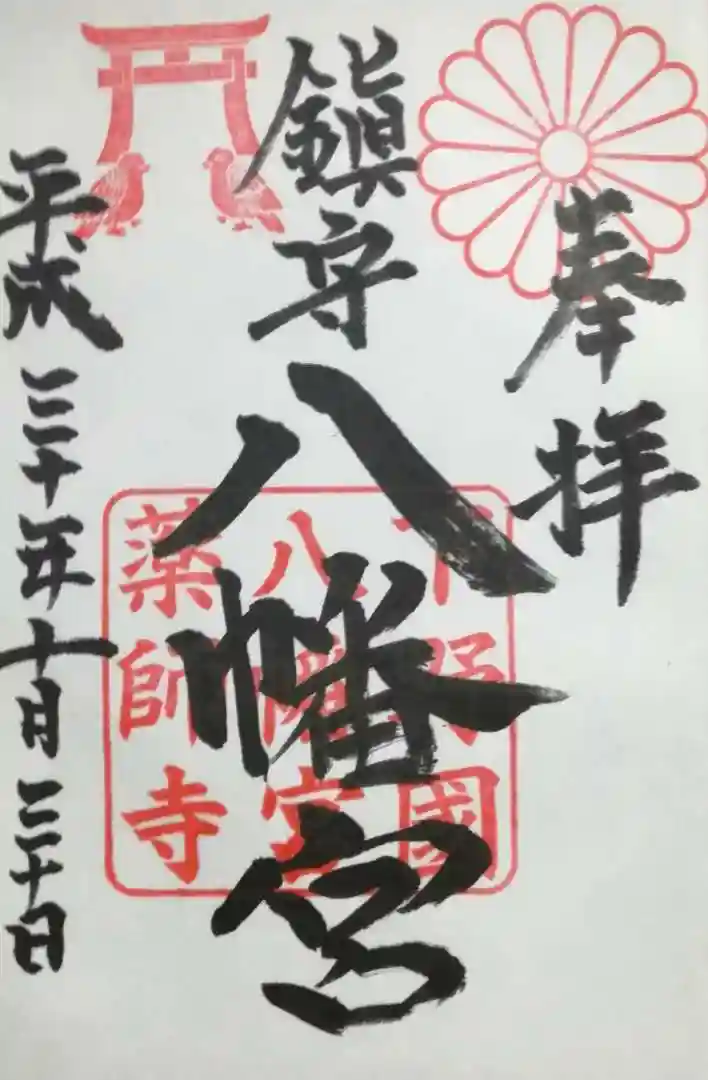 奉拝
鎮守
八幡宮
下野國
八幡宮
薬師寺
平成三十年十月三十日